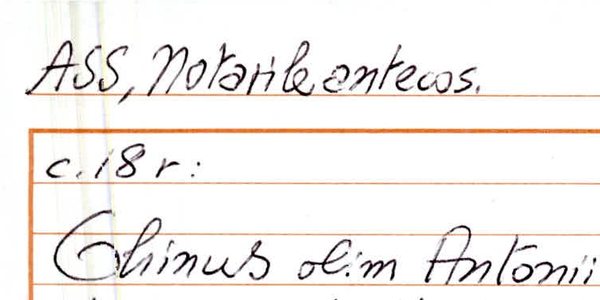 ASS, Notarile antecos.
c. 18 r:
Ghinus olim Antonii